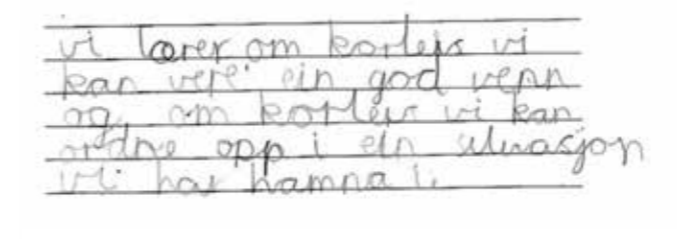 vi lærer om korleis vi
kan vere ein god venn
og om korleis vi kan
ordne opp i ein situasjon
vi har hamna i.